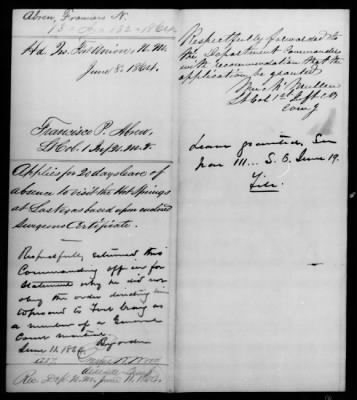 Abreu, Francisco P.
Hd. Qrs. Fort Union, N.M.
June 8. 1864.
Francisco P. Abreu,
Lt Col. 1 Inf N.M.V.
Applies for 20 days leave of
absence to visit the Hot Springs
at Las Vegas based upon enclosed
Surgeons Certificate.
Respectfully returned this
Commanding officer for
statement why he did not
obey the order directing him
to proceed to Fort Craig as
a member of a General
Court martial.
By order
June 11. 1864
Rec. Dep. N.M. June 11. 1864.
Respectfully forwarded to
the Department Commander
with recommendation that the
application be granted
Lt Col 1st Inft C.V.
Comg
Leave granted, See
Par III... S.O. June 19.
File.